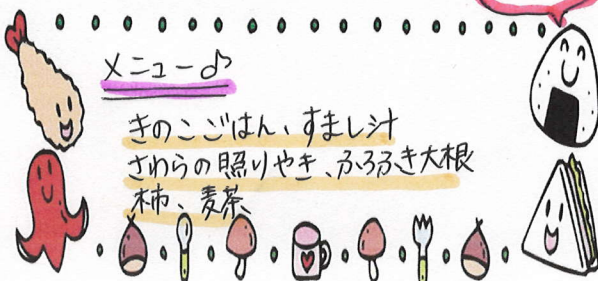 メニュー♪
きのこごはん、すまし汁
さわらの照りやき、ふろふき大根
柿、麦茶